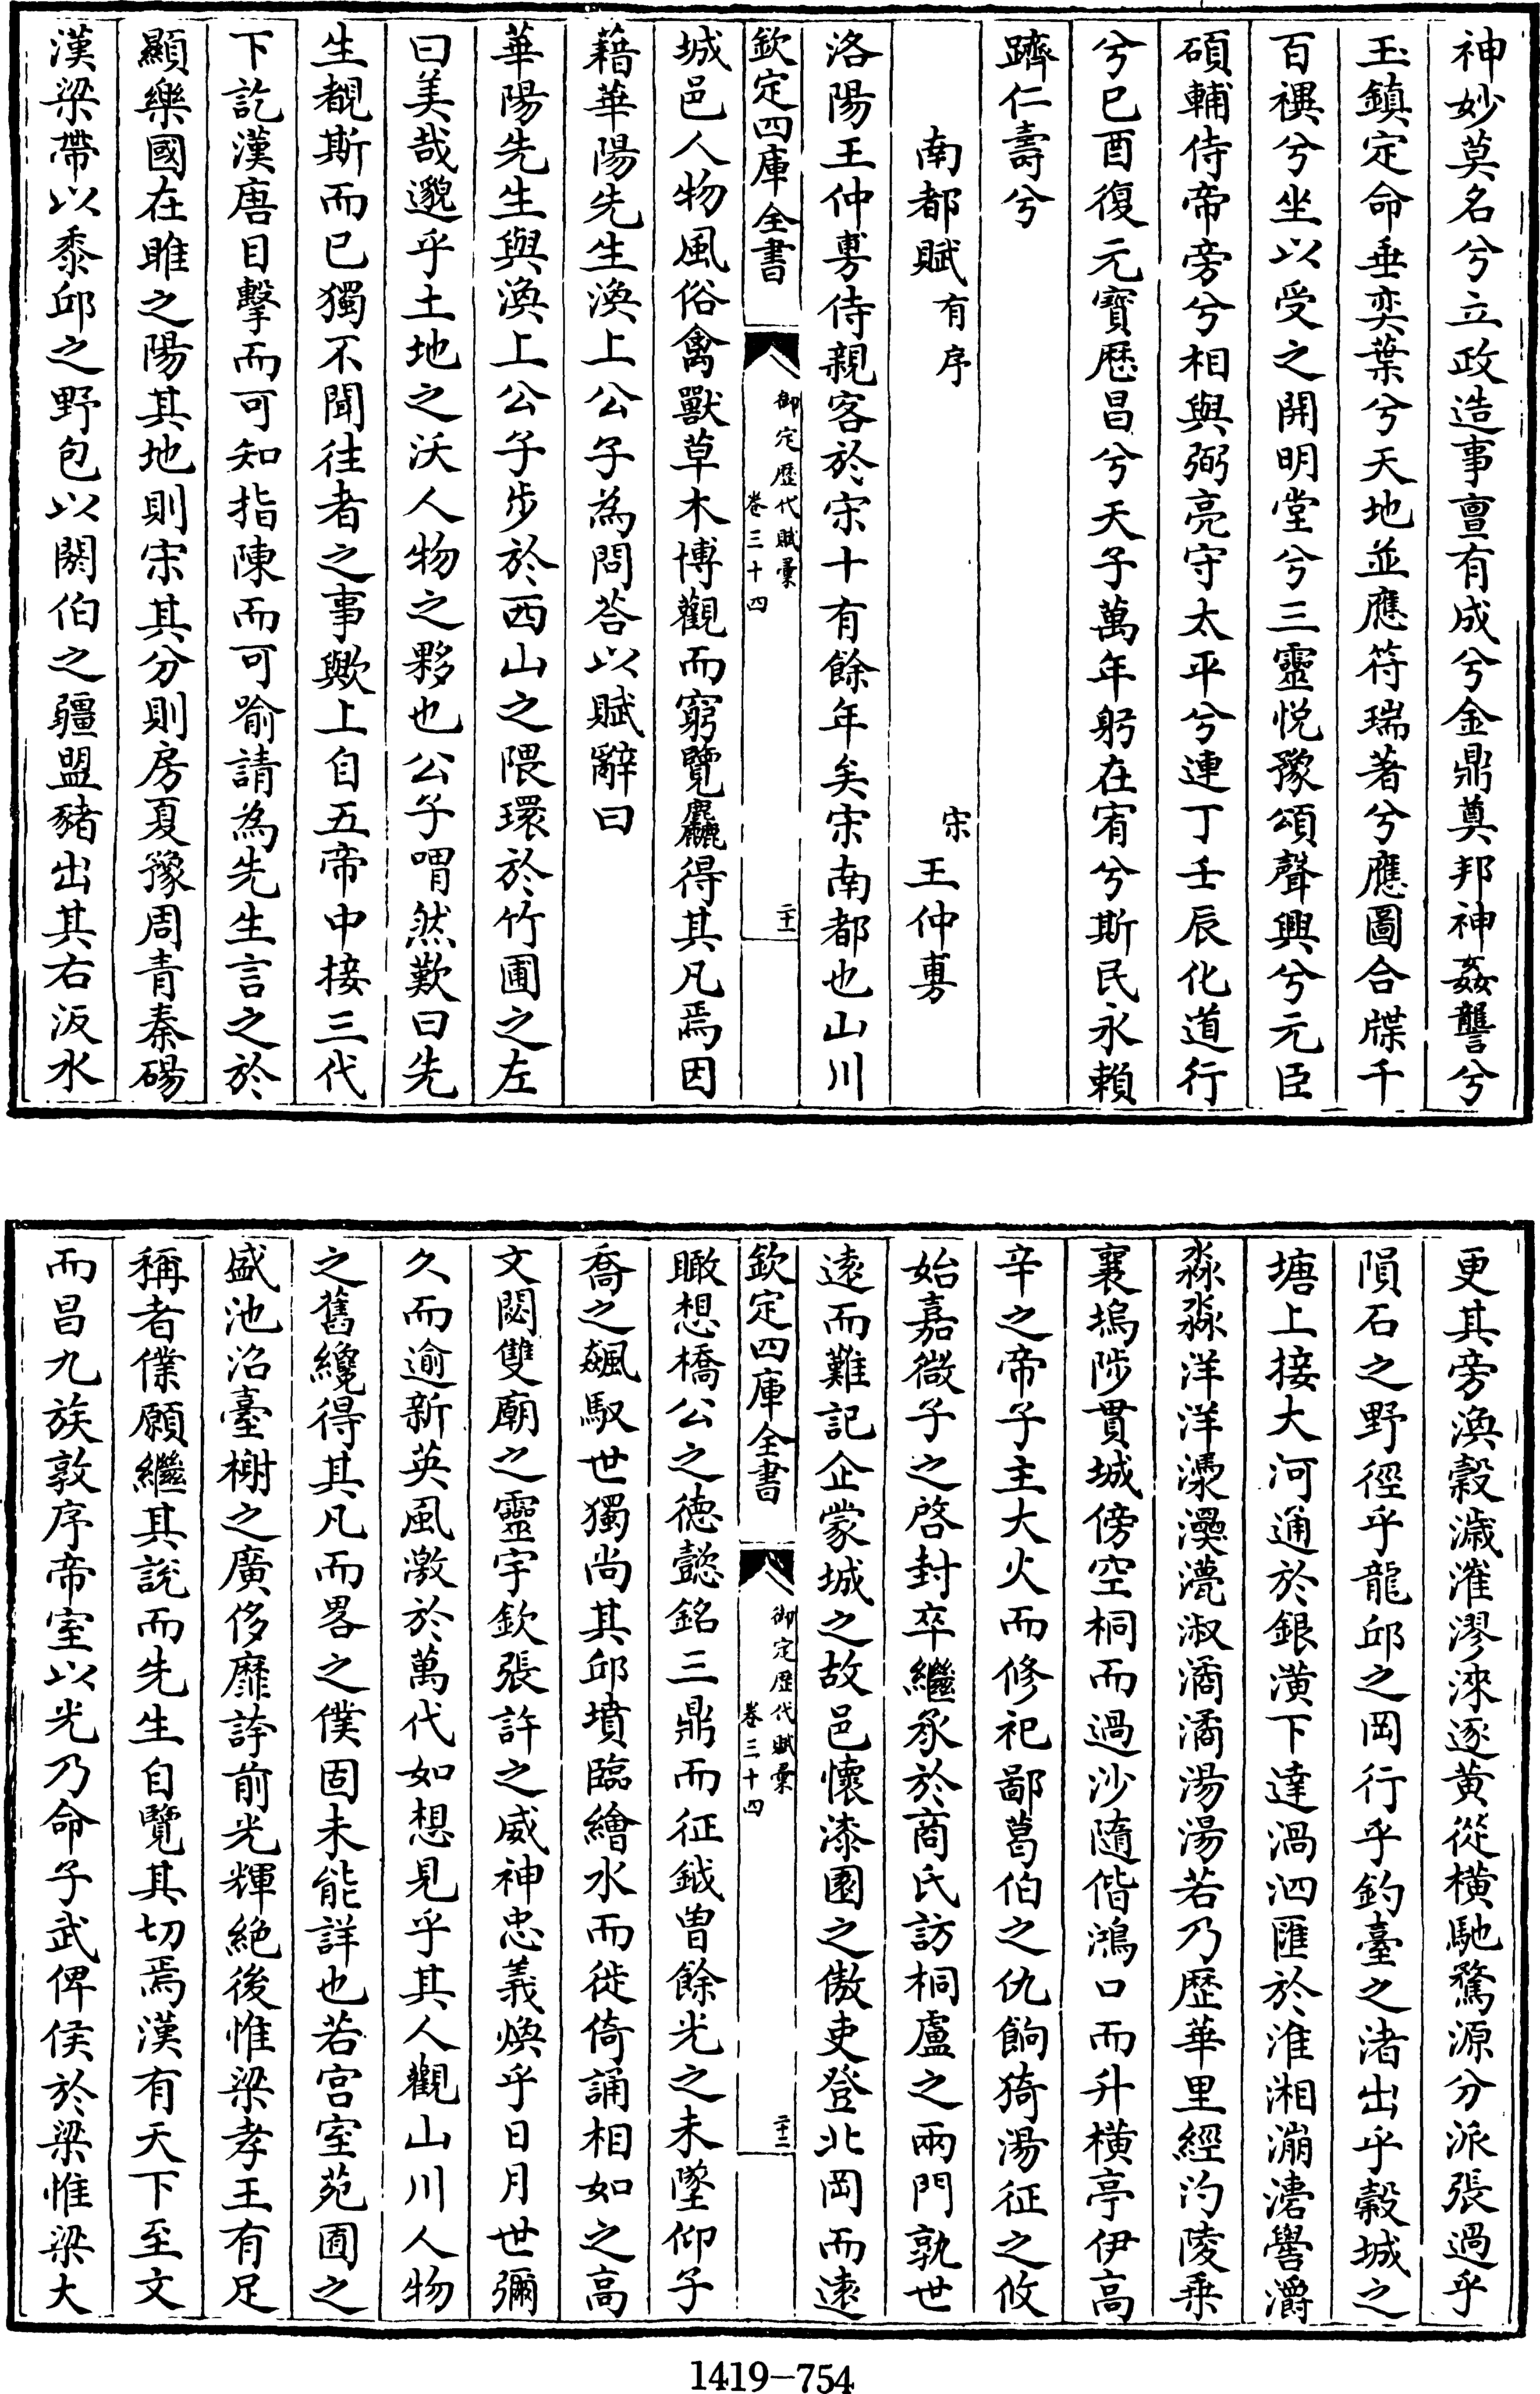 神妙莫名兮立政造事亶有成兮金鼎奠邦神姦讋兮
玉鎮定命垂奕葉兮天地並應符瑞著兮應圖合牒千
百禩兮坐以受之開明堂兮三靈悅豫頌聲興兮元臣
碩輔侍帝旁兮相與弼亮守太平兮連丁壬辰化道行
兮巳酉復元寶厯昌兮天子萬年躬在宥兮斯民永賴
躋仁壽兮
南都賦有序 宋 王仲旉
洛陽王仲旉侍親客於宋十有餘年矣宋南都也山川
欽定四庫全書 御定歴代賦彙 卷三十四 二十一
城邑人物風俗禽獸草木博觀而窮覽麤得其凡焉因
藉華陽先生渙上公子為問荅以賦辭曰
華陽先生與渙上公子步於西山之隈環於竹圃之左
曰美哉邈乎土地之沃人物之夥也公子喟然歎曰先
生覩斯而已獨不聞往者之事歟上自五帝中接三代
下訖漢唐目擊而可知指陳而可喻請為先生言之於
顯樂國在睢之陽其地則宋其分則房夏豫周青秦碭
漢梁帶以黍邱之野包以閼伯之疆盟豬出其右汳水
更其旁渙穀濊漼漻淶逐黄從橫馳騖源分派張過乎
隕石之野徑乎龍邱之岡行乎釣臺之渚出乎穀城之
塘上接大河通於銀潢下達渦泗匯於淮湘漰濞礐灂
淼淼洋洋瀀濝灙淑潏潏湯湯若乃歴華里經汋陵乗
襄塢陟貫城傍空桐而過沙隨偕鴻口而升橫亭伊高
辛之帝子主大火而修祀鄙葛伯之仇餉猗湯征之攸
始嘉微子之啓封卒繼承於商氏訪桐盧之兩門孰世
遠而難記企蒙城之故邑懷漆園之傲吏登北岡而遠
欽定四庫全書 御定歴代賦彙 卷三十四 二十二
瞰想橋公之德懿銘三鼎而征鉞曽餘光之未墜仰子
喬之飆馭世獨尚其邱墳臨繪水而徙倚誦相如之高
文閟雙廟之靈宇欽張許之威神忠義煥乎日月世彌
久而逾新英風激於萬代如想見乎其人觀山川人物
之舊纔得其凡而畧之僕固未能詳也若宮室苑囿之
盛池沼臺榭之廣侈靡誇前光輝絶後惟梁孝王有足
稱者僕願繼其說而先生自覽其切焉漢有天下至文
而昌九族敦序帝室以光乃命子武俾侯於梁惟梁大
1419—754